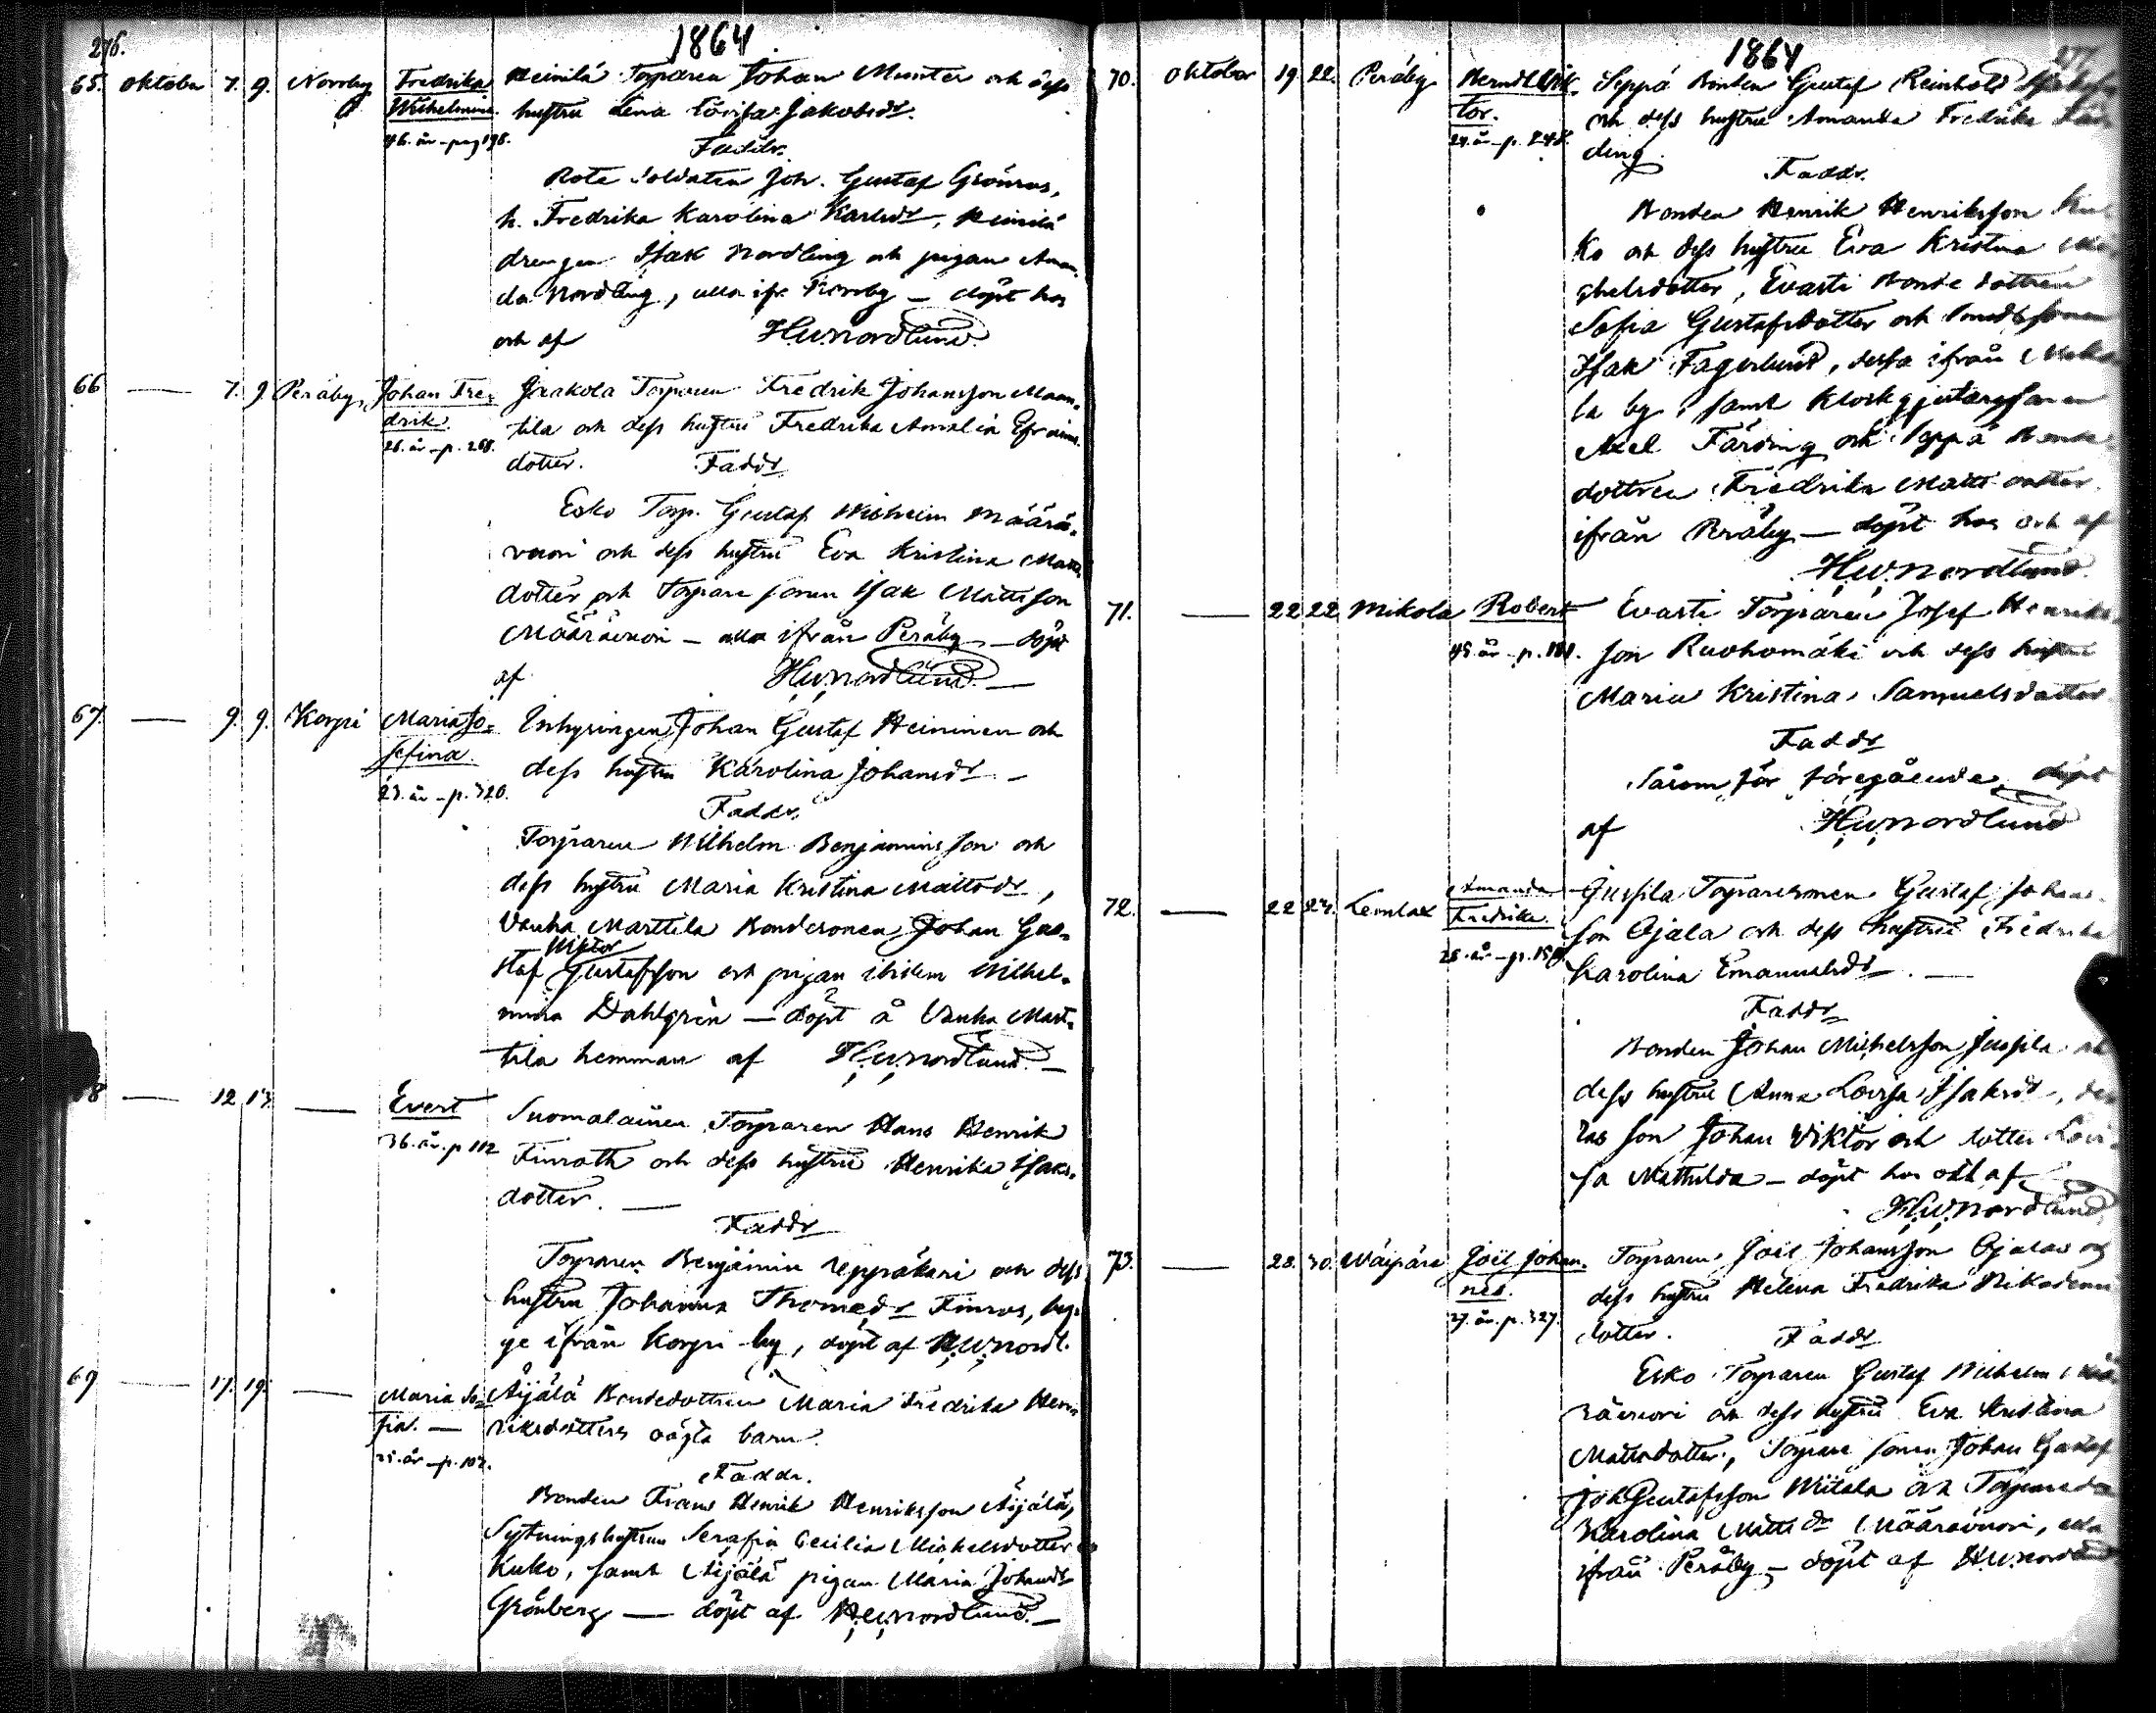 276.
1864
65. oktober 7. 9. Norrby Fredrika Heinilä Torparen Johan Munter och dess
Wilhelmina. hustru Lena Lovisa Jakobsdr.
46. år - pag 198.
Faddr.
Rote Soldaten Joh. Gustaf Grönroos,
h. Fredrika Karolina Karlsdr, Heinilä
drengen Isak Nordling och pigan Aman-
da Nordling, alla ifr. Norrby — döpt hos
och af HWNordlund
66 — 7. 9. Peräby, Johan Fre- Jaakola Torparen Fredrik Johansson Maan-
drik. tila och dess hustru Fredrika Amalia Efraims-
26. år - p. 268.
dotter. Faddr
Esko Torp. Gustaf Wilhelm Määrä-
vuori och dess hustru Eva Kristina Matts
dotter och Torpare sonen Isak Mattsson
Määrävuori — alla ifrån Peräby — döpt
af HWNordlund —
67. — 9. 9. Korpi Maria Jo- Inhysingen Johan Gustaf Heininen och
sefina. dess hustru Karolina Johansdr —
23. år - p. 320.
Faddr.
Torparen Wilhelm Benjaminsson och
dess hustru Maria Kristina Mattsdr,
Vanha Marttila Bondesonen Johan Gus-
Viktor
taf Gustafsson och pigan ibidem Wilhel-
mina Dahlgrén — döpt å Vanha Mart-
tila hemman af HWNordlund —
68 — 12 13 — Evert Suomalainen Torparen Hans Henrik
36. år. p 112 Finroth och dess hustru Henrika Isaks-
dotter. —
Faddr
Torparen Benjamin Seppäkari och dess
hustru Johanna Thomasdr Finroos, beg-
ge ifrån Korpi by, döpt af HWNordl.
69 — 17. 19. — Maria So- Äijälä Bondedottren Maria Fredrika Hen-
fia. — riksdotters oägta barn.
25. år - p. 102.
Faddr.
Bonden Frans Henrik Henriksson Äijälä,
Sytningshustrun Serafia Cecilia Michelsdotter
Kukko, samt Äijälä pigan Maria Johansdr
Grönberg — döpt af HWNordlund. —
1864
70. Oktober 19. 22. Peräby Bernd Vik- Seppä Bonden Gustaf Reinhold
tor. och dess hustru Amanda Fredrika Fär-
24. år - p. 248.
ding.
Faddr.
Bonden Henrik Henriksson Kuk-
ko och dess hustru Eva Kristina Mi-
chelsdotter, Evasti Bonde dottren
Sofia Gustafsdotter och
Isak Fagerlund, dessa ifrån Miko-
la by, samt Klockgjutaresonen
Axel Färding och Seppä Bonde
dottren Fredrika Matts dotter
ifrån Peräby — döpt hos och af
HWNordlund
71. — 22 22 Mikola Robert Evasti Torparen Josef Henriks-
45. år - p. 181. son Ruohomäki och dess hustru
Maria Kristina Samuelsdotter
Faddr
Såsom för föregående, döpt
af HWNordlund
72. — 22 23. Lemlax Amanda Jussila Torparesonen Gustaf Johans-
Fredrika. son Ojala och dess hustru Fredrika
28. år - p. 158.
Karolina Emanuelsdr. —
Faddr
Bonden Johan Michelsson Jussila och
dess hustru Anna Lovisa Isaksdr, de-
ras son Johan Viktor och dotter Lovi-
sa Mathilda — döpt hos och af
HWNordlund
73. — 28. 30. Wäipäre Joel Johan- Torparen Joel Johansson Ojala och
nes. dess hustru Helena Fredrika Nikodemi
27. år. p. 327.
dotter. Faddr
Esko Torparen Gustaf Wilhelm Mää-
rävuori och dess hustru Eva Kristina
Mattsdotter, Torpare sonen Johan Gustaf
Joh Gustafsson Mitala och Torparedr
Karolina Matts dr Määrävuori, alla
ifrån Peräby — döpt af HWNordlund